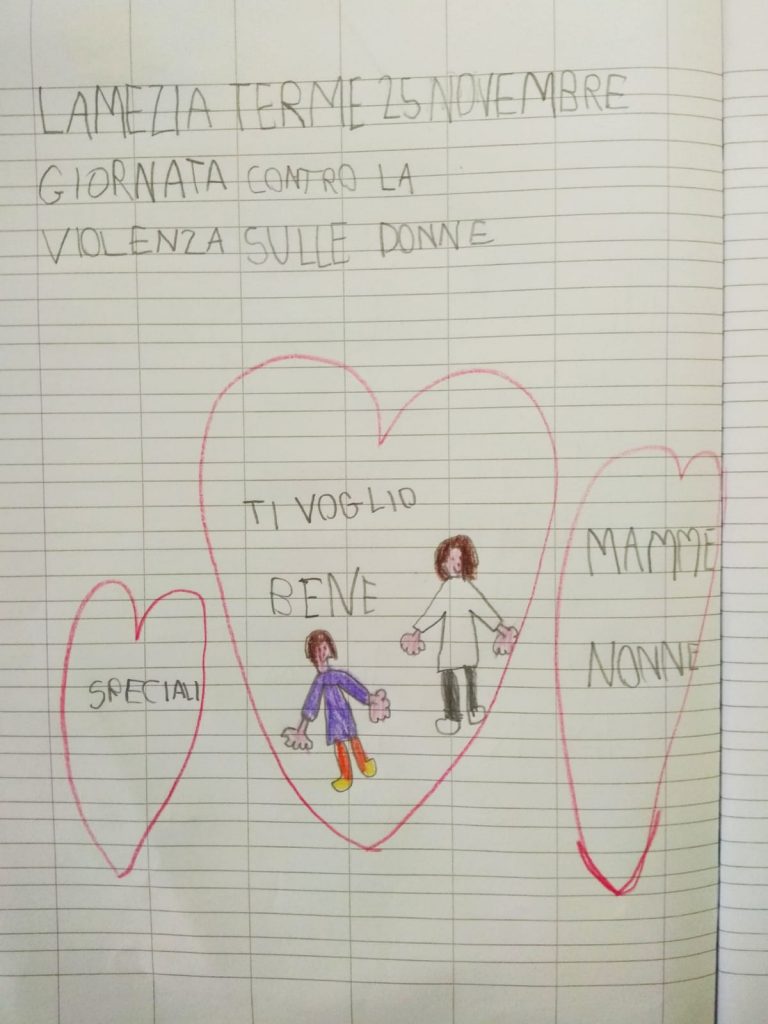 LAMEZIA TERME 25 NOVEMBRE
GIORNATA CONTRO LA
VIOLENZA SULLE DONNE
TI VOGLIO
BENE
SPECIALI
MAMME
NONNE